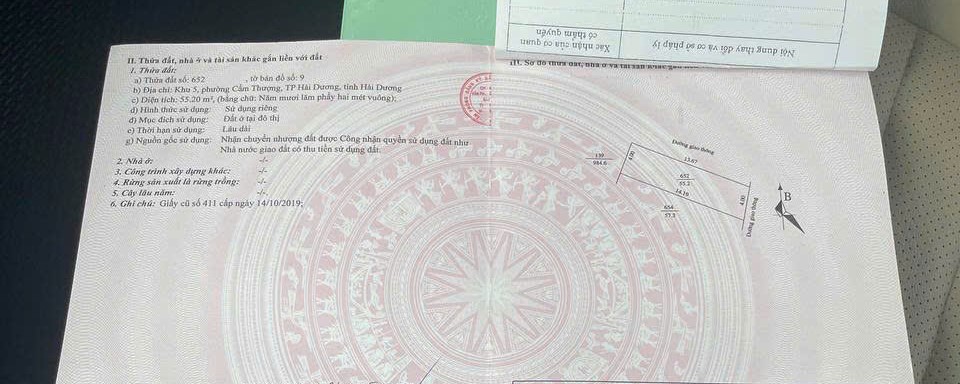 II. Thửa đất, nhà ở và tài sản khác gắn liền với đất
1. Thửa đất:
a) Thửa đất số: 652 , tờ bản đồ số: 9
b) Địa chỉ: Khu 5, phường Cẩm Thượng, TP Hải Dương, tỉnh Hải Dương
c) Diện tích: 55.20 m², (bằng chữ: Năm mươi lăm phẩy hai mét vuông);
d) Hình thức sử dụng: Sử dụng riêng
đ) Mục đích sử dụng: Đất ở tại đô thị
e) Thời hạn sử dụng: Lâu dài
g) Nguồn gốc sử dụng: Nhận chuyển nhượng đất được Công nhận quyền sử dụng đất như
Nhà nước giao đất có thu tiền sử dụng đất.
2. Nhà ở: -/-
3. Công trình xây dựng khác: -/-
4. Rừng sản xuất là rừng trồng: -/-
5. Cây lâu năm: -/-
6. Ghi chú: Giấy cũ số 411 cấp ngày 14/10/2019;
Nội dung thay đổi và cơ sở pháp lý
Xác nhận của cơ quan
có thẩm quyền
III. Sơ đồ thửa đất, nhà ở và tài sản khác
Đường giao thông
13.67
4.00
139
984.6
652
55.2
14.10
4.00
654
57.3
Đường giao thông
B